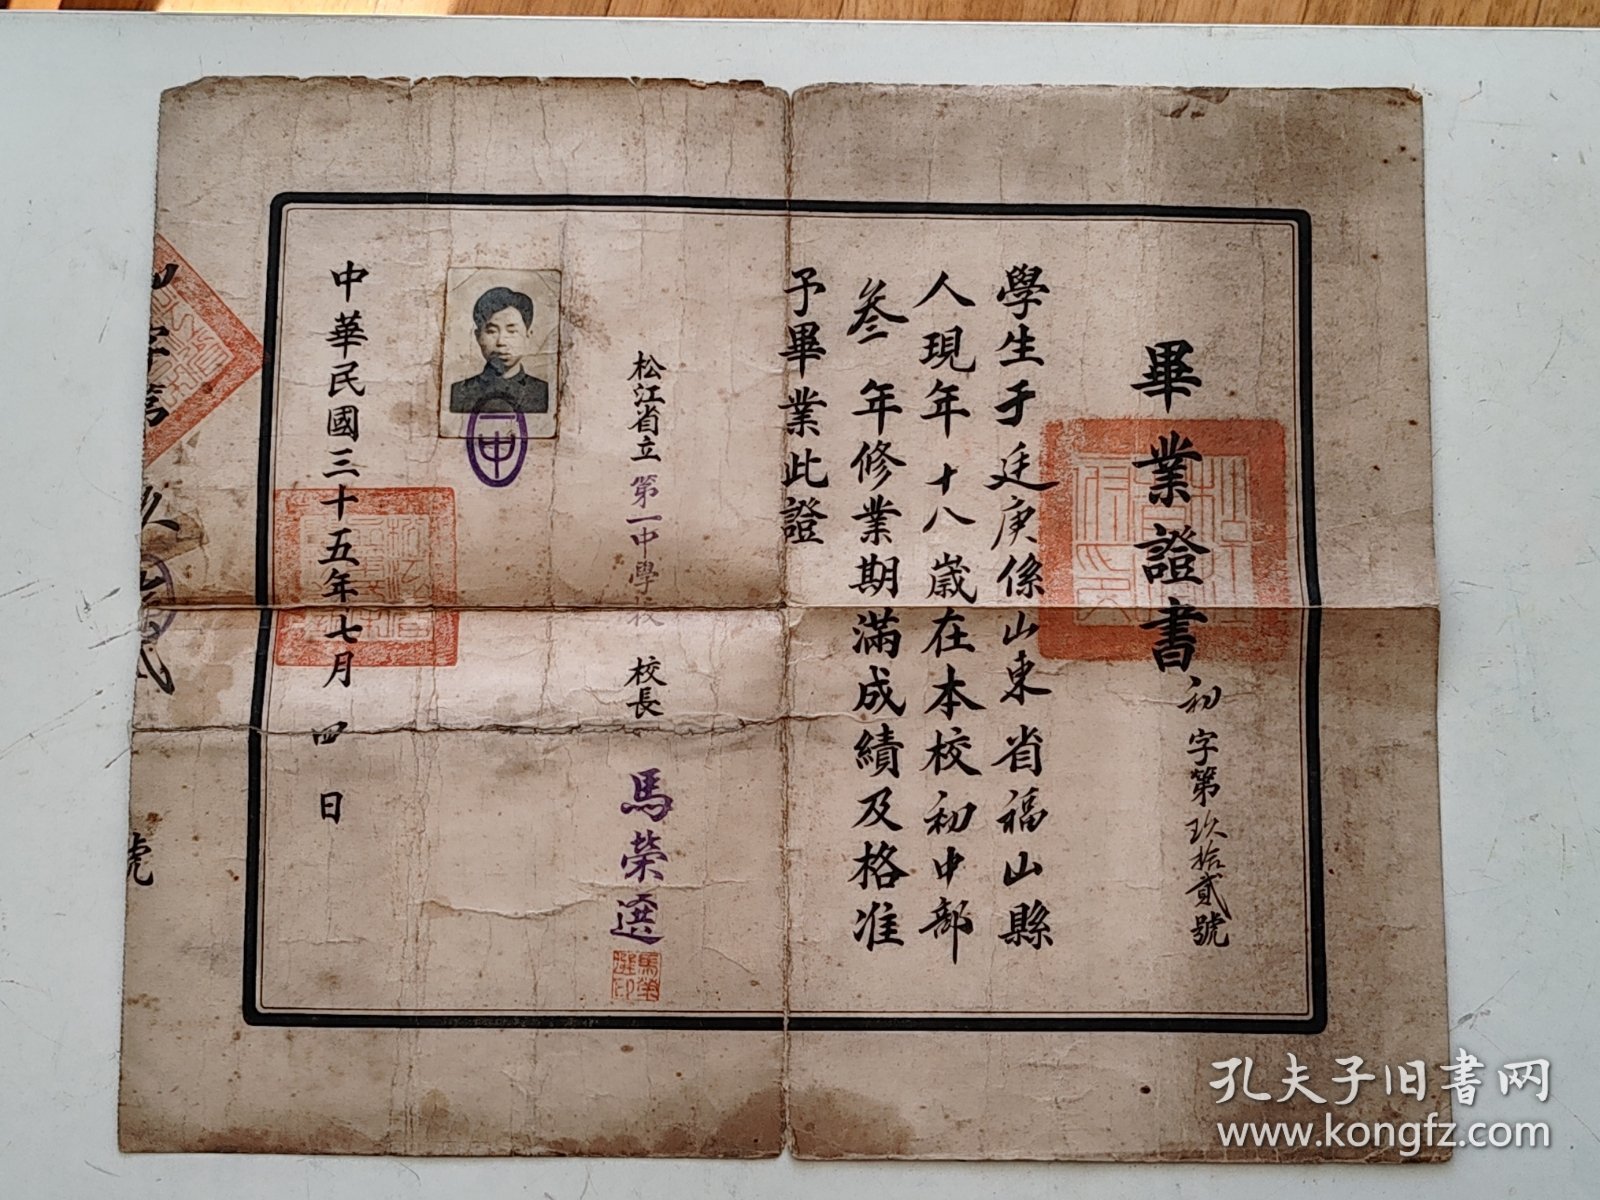 畢業證書
初字第玖拾貳號
學生于廷庚係山東省福山縣
人現年十八歲在本校初中部
叁年修業期滿成績及格准
予畢業此證
松江省立第一中學校 校長 馬榮選
馬榮選印
一中
中華民國三十五年七月四日
字第玖拾貳號
孔夫子旧書网
www.kongfz.com